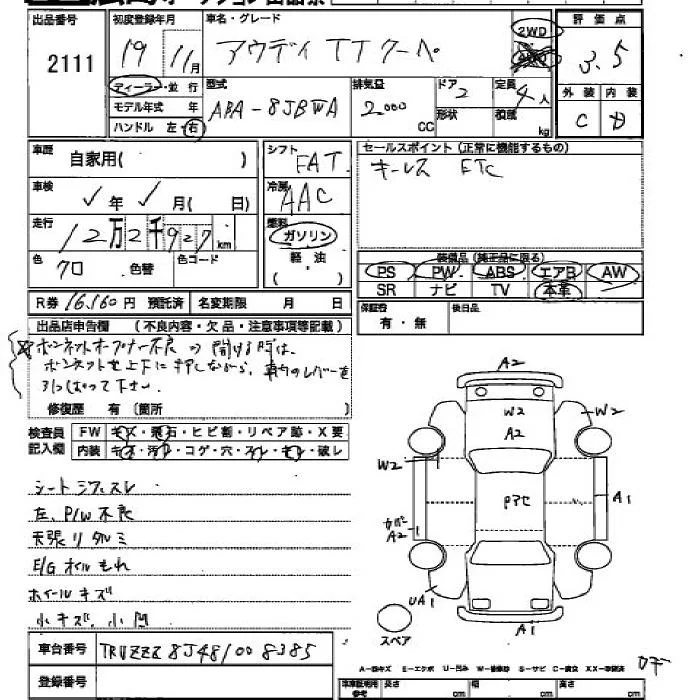 出品番号 2111
初度登録年月 19 11月
車名・グレード アウディ TT クーペ
2WD
評価点 3.5
外装 C 内装 D
ディーラー・並行
モデル年式 年
ハンドル 左・右
型式 ABA-8JBWA
排気量 2000 CC
ドア 2
形状
定員 4人
積載 kg
車歴 自家用( )
シフト FAT
セールスポイント(正常に機能するもの)
キーレス ETC
車検 年 月( 日)
冷房 AAC
走行 12万2千927km
燃料 ガソリン
軽油
( )
色 クロ 色替 色コード
装備品(純正品に限る)
PS PW ABS エアB AW
SR ナビ TV 本革
R券 16.160円 預託済 名変期限 月 日
保証書 有・無
後日品
出品店申告欄 (不良内容・欠品・注意事項等記載)
ボンネットオープナー不良の 開ける時は、
ボンネットを上下に押しながら、車内のレバーを
引っぱって下さい.
修復歴 有 (箇所 )
検査員記入欄
FW キズ・飛石・ヒビ割・リペア跡・X要
内装 キズ・汚レ・コゲ・穴・スレ・キレ・破レ
シートシワスレ
左、P/W不良
天張リタルミ
E/Gオイルもれ
ホイールキズ
小キズ、小凹
A2
W2
A2
W2
W2
P7C
カバー
A2
A1
UA1
A1
スペア
車台番号 TRUZZZ8J481008385
登録番号
A-線キズ E-エクボ U-凹み W-補修跡 S-サビ C-腐食 XX-交換済
車庫証明用参考 長さ cm 幅 cm 高さ cm